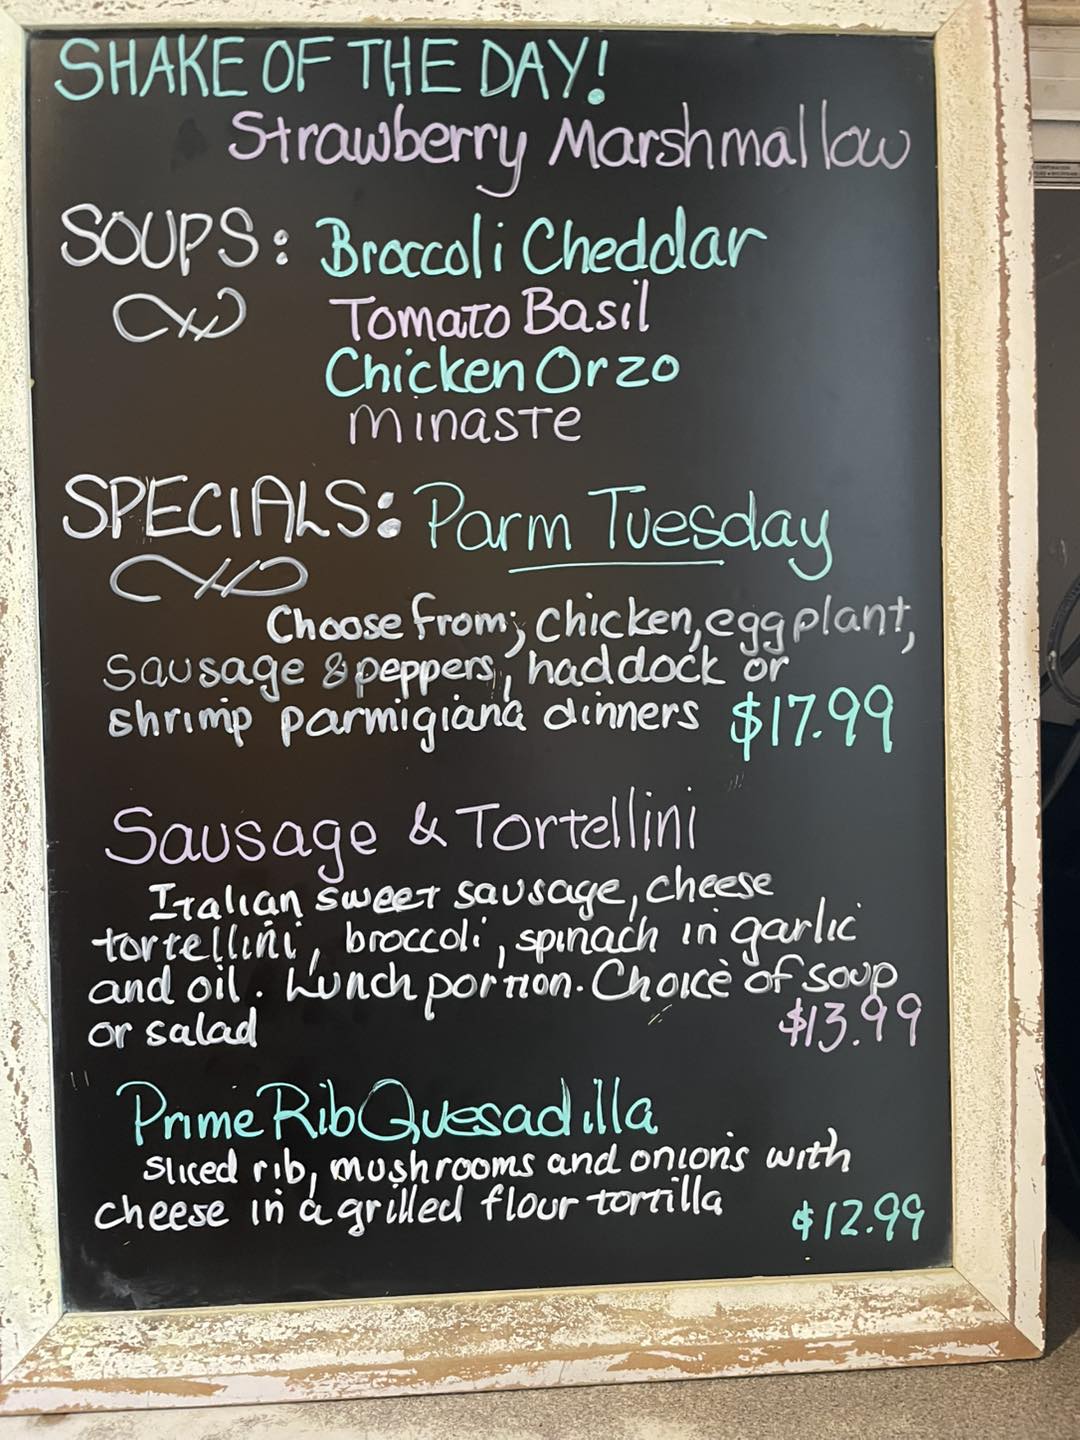 SHAKE OF THE DAY!
Strawberry Marshmallow
SOUPS: Broccoli Cheddar
Tomato Basil
Chicken Orzo
Minaste
SPECIALS: Parm Tuesday
Choose from; chicken, eggplant,
Sausage & peppers, haddock or
shrimp parmigiana dinners $17.99
Sausage & Tortellini
Italian sweet sausage, cheese
tortellini, broccoli, spinach in garlic
and oil. Lunch portion. Choice of soup
or salad $13.99
Prime Rib Quesadilla
sliced rib, mushrooms and onions with
cheese in a grilled flour tortilla $12.99